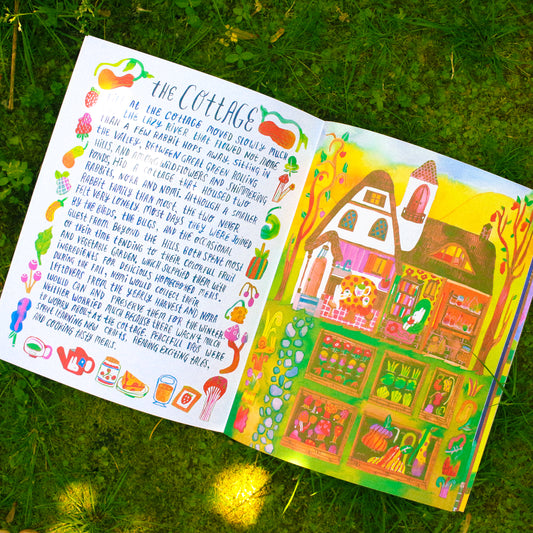 THE COTTAGE
AT THE COTTAGE MOVED SLOWLY MUCH
THE LAZY RIVER THAT FLOWED NOT MORE
THAN A FEW RABBIT HOPS AWAY. SITTING IN
THE VALLEY, BETWEEN GREAT GREEN ROLLING
HILLS, AND AMONG WILDFLOWERS AND SHIMMERING
PONDS, HID A COTTAGE THAT HOUSED TWO
RABBITS, NORA AND NOMI. ALTHOUGH A SMALLER
RABBIT FAMILY THAN MOST, THE TWO NEVER
FELT VERY LONELY. MOST DAYS THEY WERE JOINED
BY THE BIRDS, THE BUGS, AND THE OCCASIONAL
GUEST FROM BEYOND THE HILLS. BOTH SPENT MOST
OF THEIR TIME TENDING TO THEIR COLORFUL FRUIT
AND VEGETABLE GARDEN, WHICH SUPPLIED THEM WITH
INGREDIENTS FOR DELICIOUS HOMECOOKED MEALS.
DURING THE FALL, NOMI WOULD COLLECT THEIR
LEFTOVERS FROM THE YEARLY HARVEST AND NORA
WOULD CAN AND PRESERVE THEM FOR THE WINTER.
NEITHER WORRIED MUCH BECAUSE THERE WASN'T MUCH
TO WORRY ABOUT AT THE COTTAGE. PEACEFUL DAYS WERE
SPENT LEARNING NEW CRAFTS, HEARING EXCITING TALES,
AND COOKING TASTY MEALS.